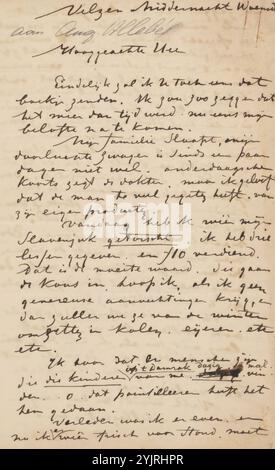 Velzen Middernacht Woensd
aan Aug Allebé
Hooggeachte Heer
Eindelijk zal ik U toch eens dat
boekje zenden. Ik zou zoo zeggen dat
het meer dan tijd werd nu eens mijn
belofte na te komen.
Mijn familie slaapt, mijn
zwager is sinds een paar
dagen niet wel, anderdaagsche
koorts zegt de dokter maar ik geloof
dat de man te veel gegeten heeft van
z'n eigen producten
Vandaag heb ik weer mijn
Slavenjuk getorscht ik heb drie
lessen gegeven en f10 verdiend.
Dat is de moeite waard die gaan
de kous in, hoop ik, als ik geen
genereuse aanvechtingen krijg, en
dan zullen we ze van de winter
omzetten in kolen, eijeren etc
etc.
Ik hoor dat er menschen zijn
op 't Damrak
die die kinderen mal vin
den. o. dat pointilleeren heeft het
hem gedaan.
Verleden was ik er even en
nu ik weer frisch voor stond, moet
alamy